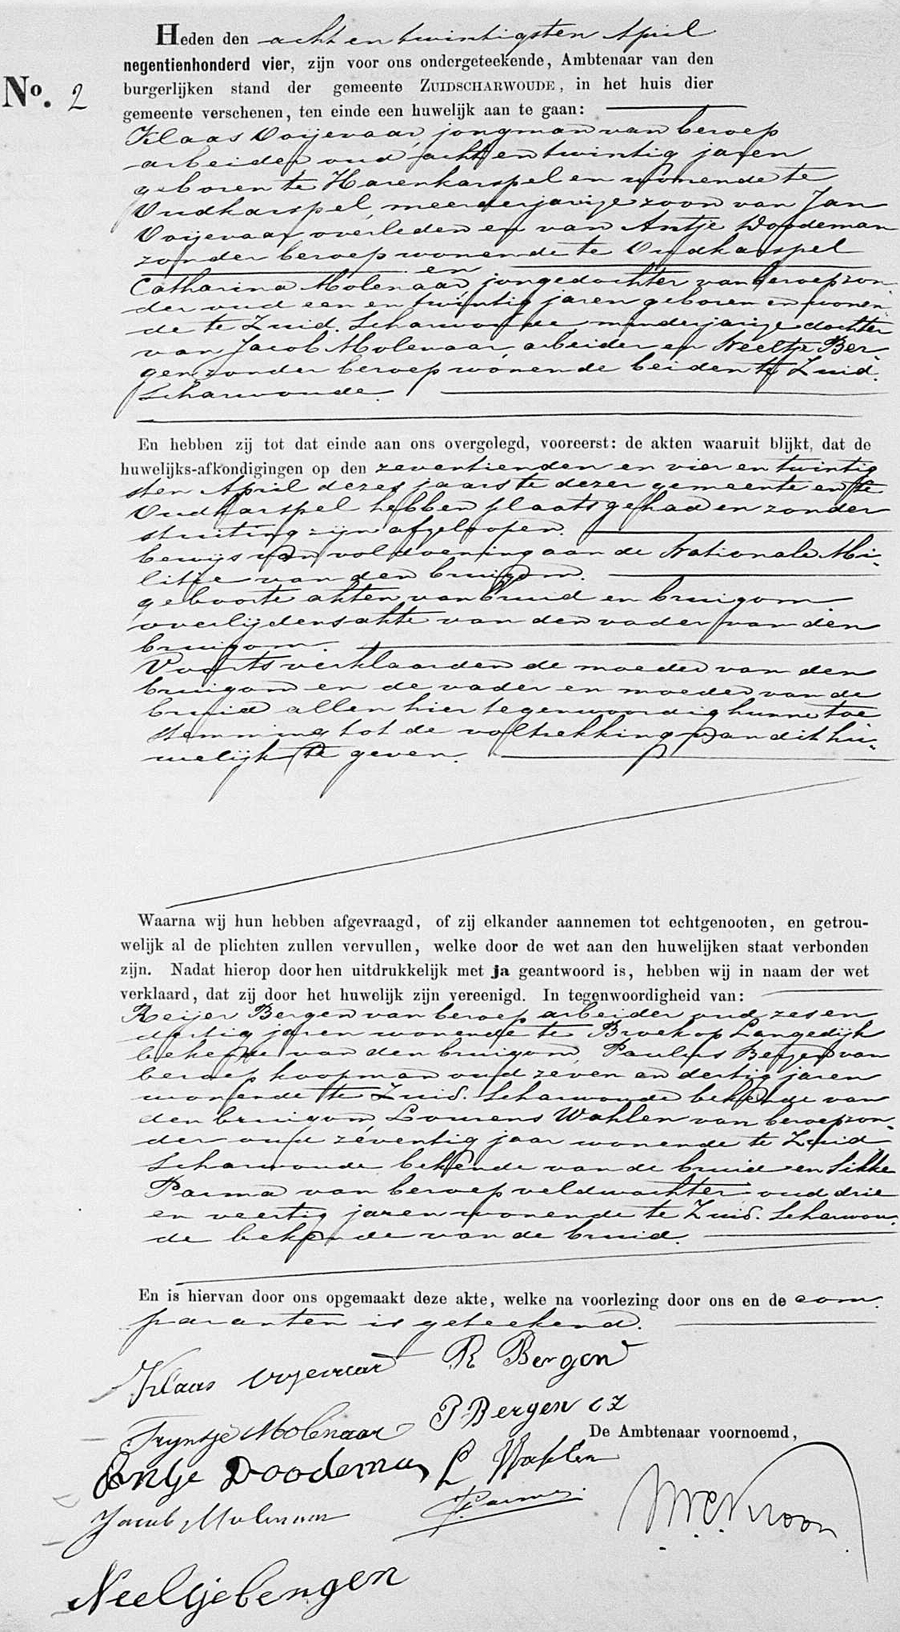 Heden den acht en twintigsten April
negentienhonderd vier, zijn voor ons ondergeteekende, Ambtenaar van den
burgerlijken stand der gemeente ZUIDSCHARWOUDE, in het huis dier
No. 2
gemeente verschenen, ten einde een huwelijk aan te gaan:
Klaas Ooijevaar, jongman van beroep
arbeider oud acht en twintig jaren
geboren te Harenkarspel en wonende te
Oudkarspel, meerderjarige zoon van Jan
Ooijevaar overleden en van Antje Doodeman
zonder beroep wonende te Oudkarspel
en
Catharina Molenaar, jongedochter van beroep zon-
der oud een en twintig jaren geboren en wonen-
de te Zuid. Scharwoude minderjarige dochter
van Jacob Molenaar arbeider en Neeltje Ber-
gen zonder beroep wonende beiden te Zuid.
Scharwoude.
En hebben zij tot dat einde aan ons overgelegd, vooreerst: de akten waaruit blijkt, dat de
huwelijks-afkondigingen op den zeventienden en vier en twintig
sten April dezes jaars te dezer gemeente en te
Oudkarspel hebben plaats gehad en zonder
stuiting zijn afgeloopen.
bewijs van voldoening aan de Nationale Mi-
litie van den bruigom.
geboorte akten van bruid en bruigom.
overlijdensakte van den vader van den
bruigom.
Voorts verklaarden de moeder van den
bruigom en de vader en moeder van de
bruid allen hier tegenwoordig hunne toe
stemming tot de voltrekking van dit hu-
welijk te geven.
Waarna wij hun hebben afgevraagd, of zij elkander aannemen tot echtgenooten, en getrou-
welijk al de plichten zullen vervullen, welke door de wet aan den huwelijken staat verbonden
zijn. Nadat hierop door hen uitdrukkelijk met ja geantwoord is, hebben wij in naam der wet
verklaard, dat zij door het huwelijk zijn vereenigd. In tegenwoordigheid van:
Reijer Bergen van beroep arbeider oud zes en
dertig jaren wonende te Broek op Langedijk
bekende van den bruigom, Paulus Bergen van
beroep koopman oud zeven en dertig jaren
wonende te Zuid. Scharwoude bekende van
den bruigom Lourens Wahlen van beroep zon-
der oud zeventig jaar wonende te Zuid
Scharwoude bekende van de bruid en Sikke
Parma van beroep veldwachter oud drie
en veertig jaren wonende te Zuid. Scharwou-
de bekende van de bruid.
En is hiervan door ons opgemaakt deze akte, welke na voorlezing door ons en de com
paranten is geteekend.
Klaas Oijevaar R Bergen
Tryntje Molenaar P Bergen CZ
De Ambtenaar voornoemd,
Antje Doodeman L Wahlen
Jacob Molenaar S Parma
Neeltje bergen